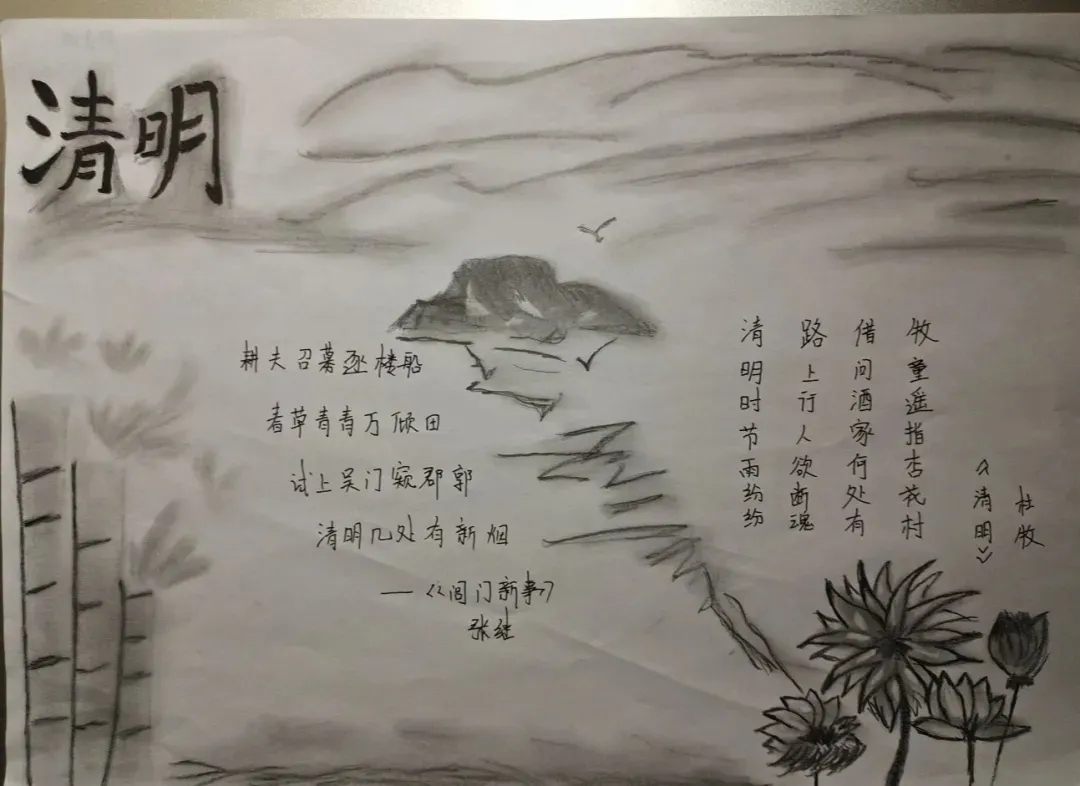 清明
耕夫召募逐楼船
春草青青万顷田
试上吴门窥郡郭
清明几处有新烟
—《阊门新事》
张继
清明时节雨纷纷
路上行人欲断魂
借问酒家何处有
牧童遥指杏花村
《清明》
杜牧